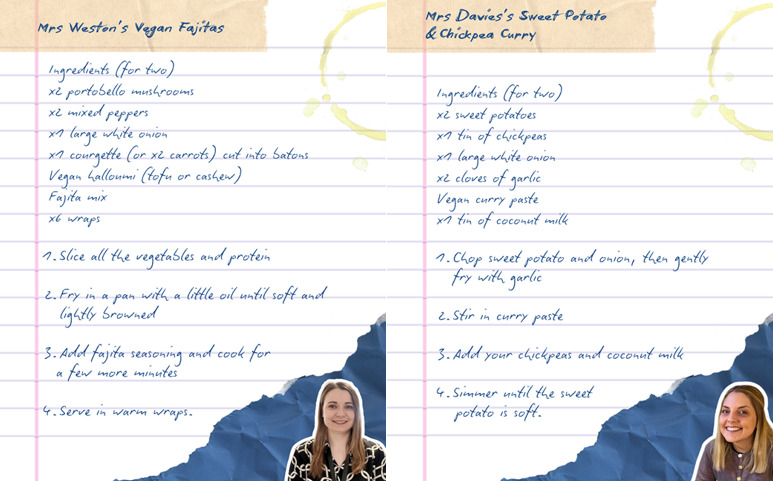 Mrs Weston's Vegan Fajitas
Ingredients (for two)
x2 portobello mushrooms
x2 mixed peppers
x1 large white onion
x1 courgette (or x2 carrots) cut into batons
Vegan halloumi (tofu or cashew)
Fajita mix
x6 wraps
1. Slice all the vegetables and protein
2. Fry in a pan with a little oil until soft and
lightly browned
3. Add fajita seasoning and cook for
a few more minutes
4. Serve in warm wraps.
Mrs Davies's Sweet Potato
& Chickpea Curry
Ingredients (for two)
x2 sweet potatoes
x1 tin of chickpeas
x1 large white onion
x2 cloves of garlic
Vegan curry paste
x1 tin of coconut milk
1. Chop sweet potato and onion, then gently
fry with garlic
2. Stir in curry paste
3. Add your chickpeas and coconut milk
4. Simmer until the sweet
potato is soft.